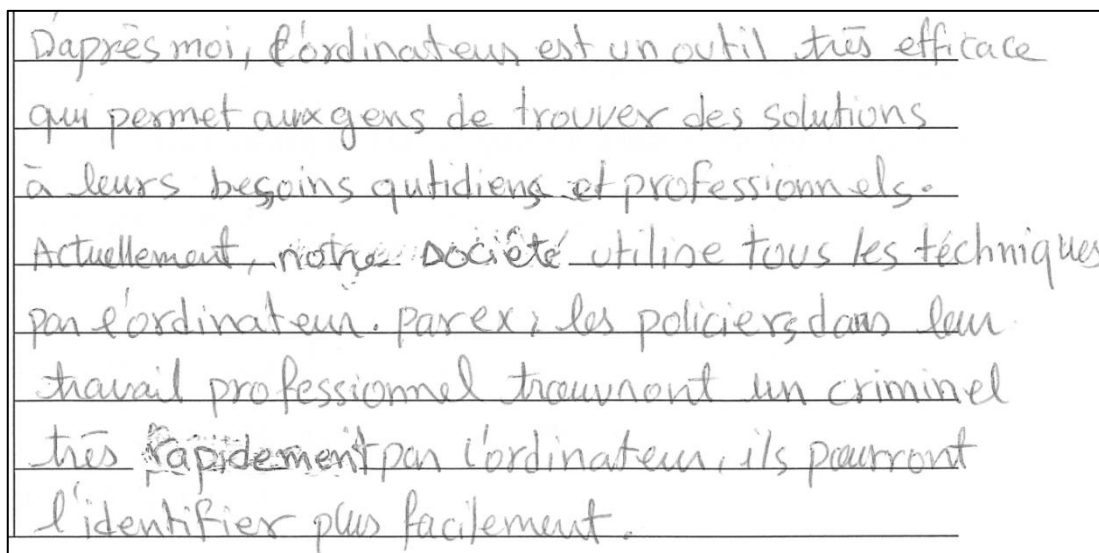 D'après moi, l'ordinateur est un outil très efficace
qui permet aux gens de trouver des solutions
à leurs besoins qutidiens et professionnels.
Actuellement, notre société utilise tous les téchniques
par l'ordinateur. par ex, les policiers dans leur
travail professionnel trouvront un criminel
très rapidement par l'ordinateur, ils pourront
l'identifier plus facilement.